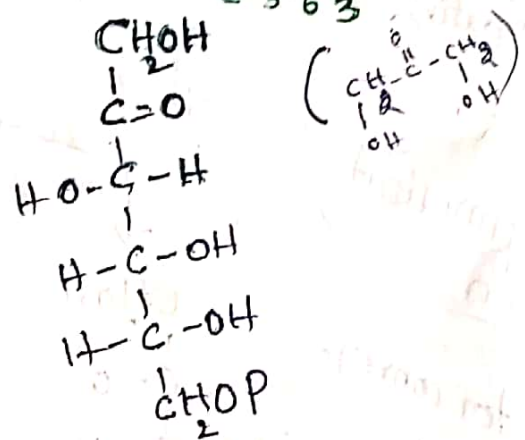 3 6 3
CH2OH
C=O
HO-C-H
H-C-OH
H-C-OH
CH2OP
O
( CH2-C-CH2 )
OH OH